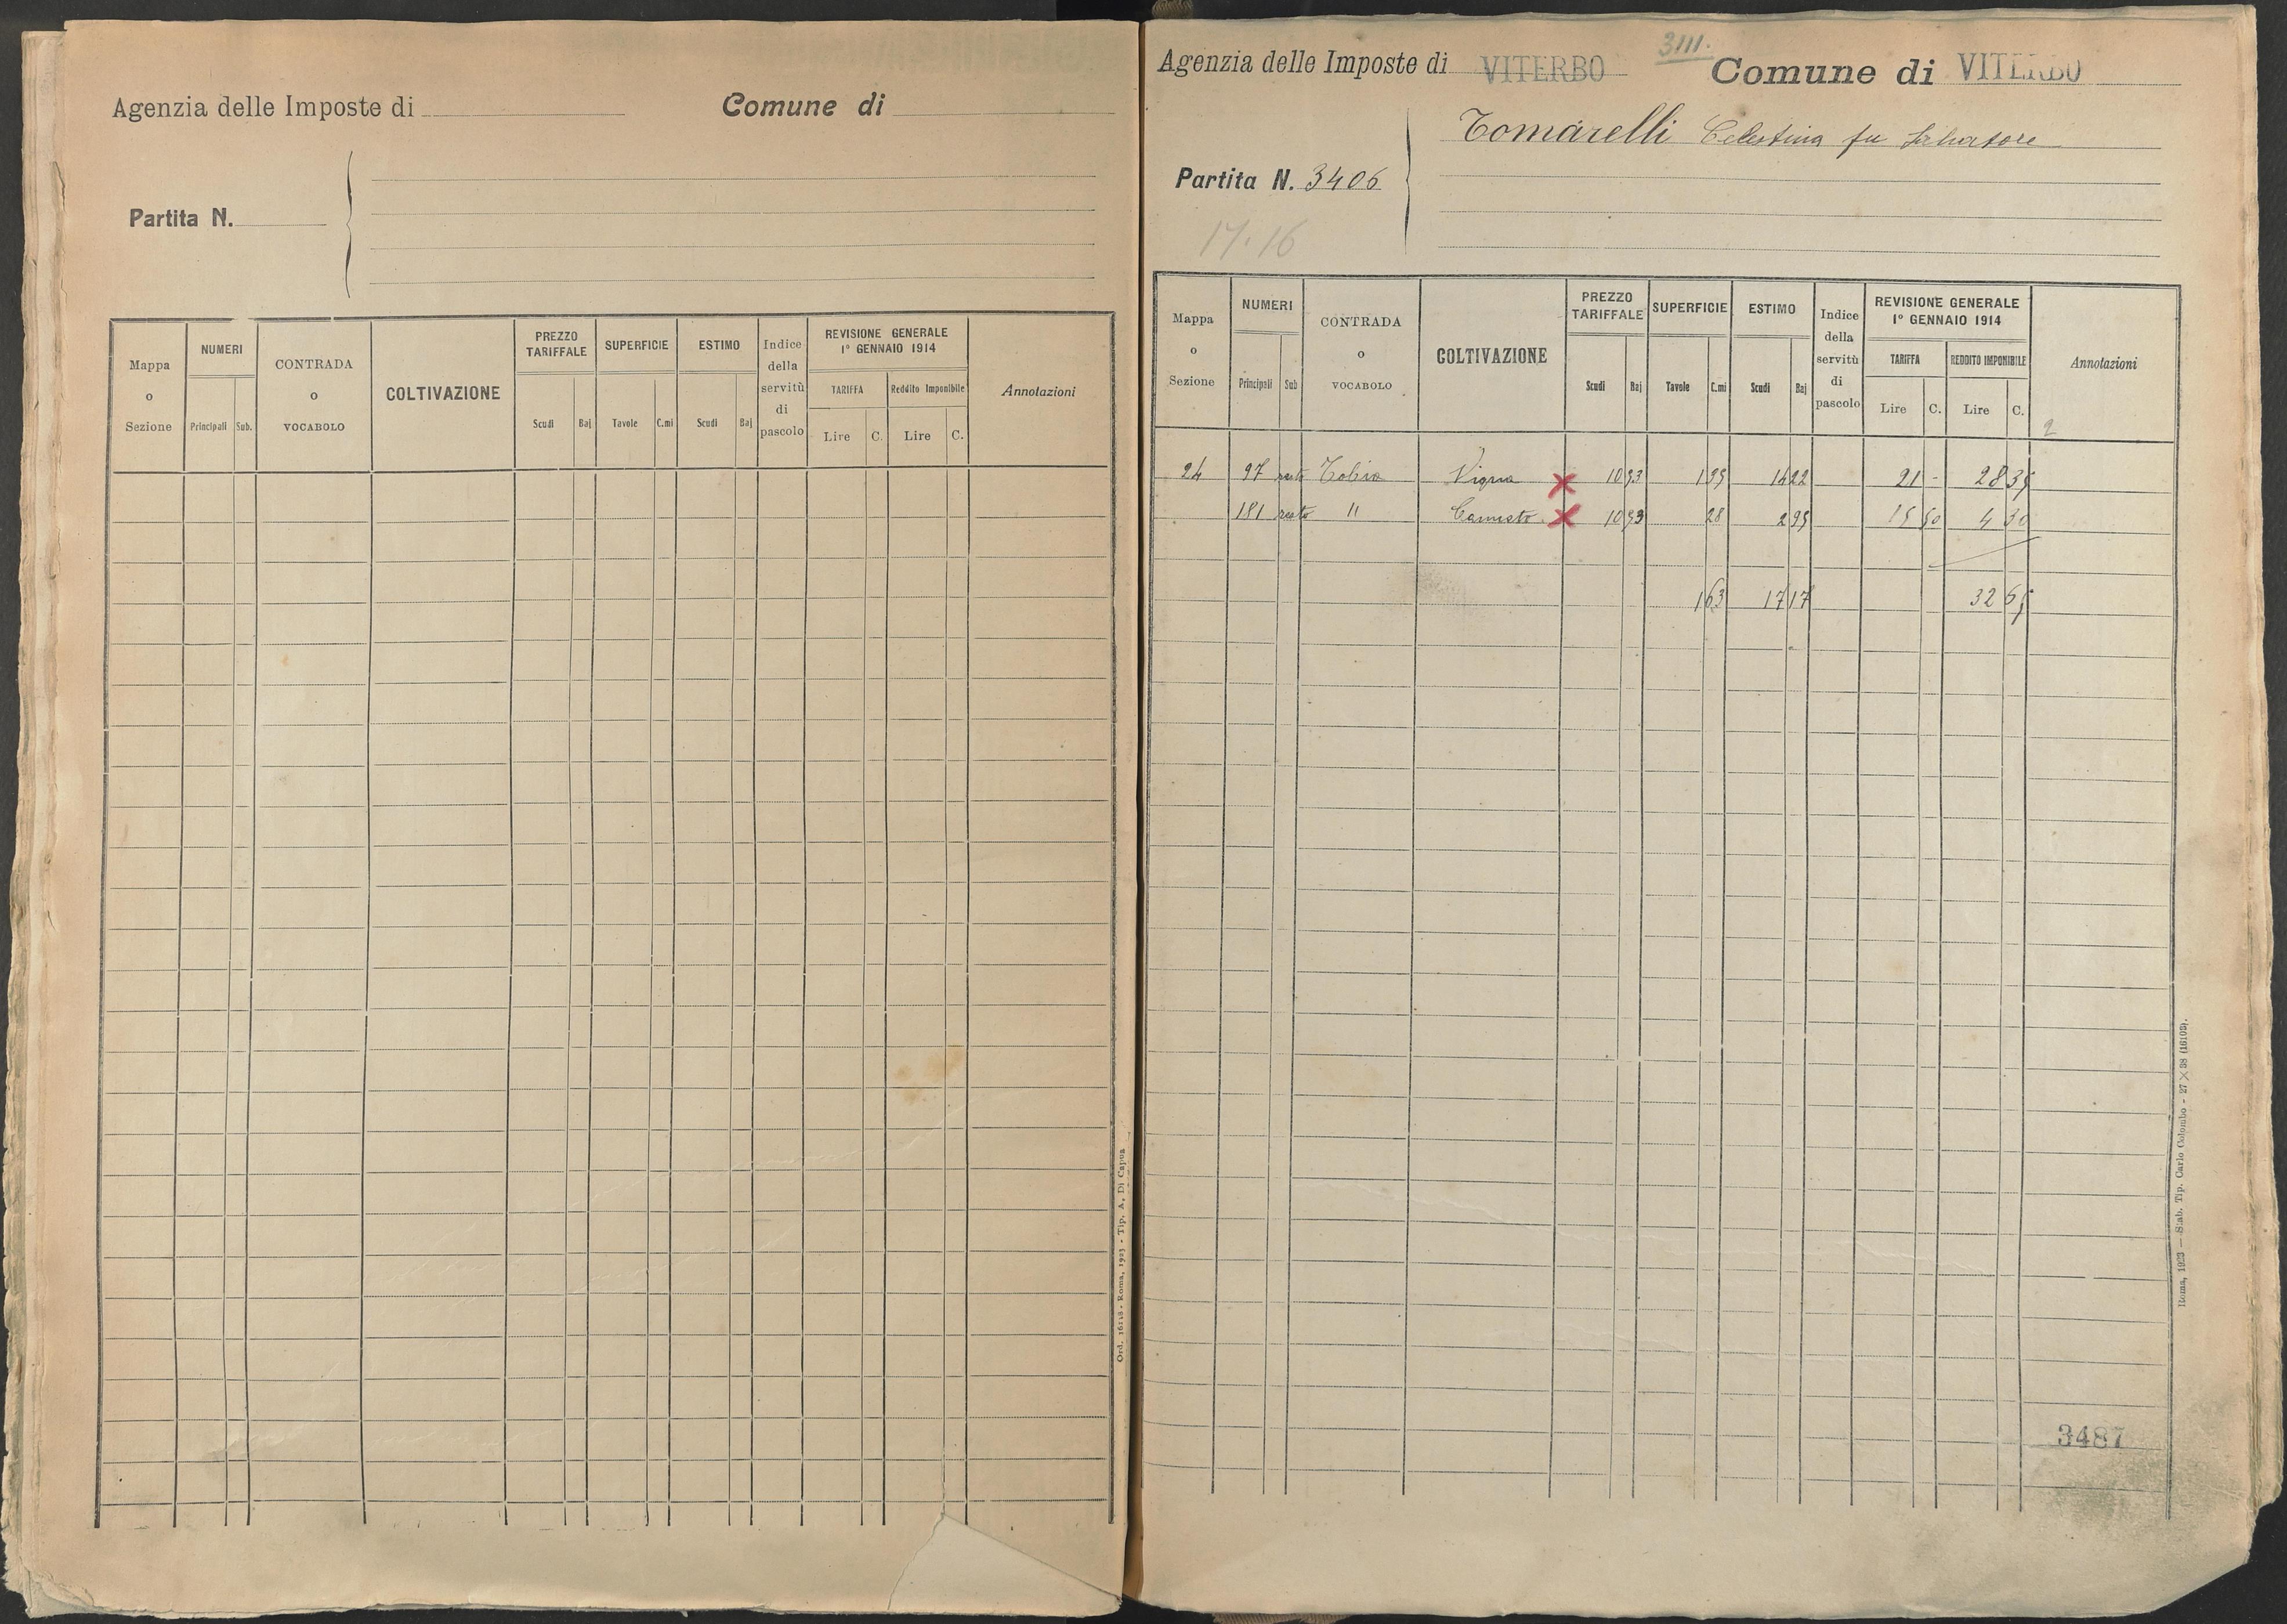 Agenzia delle Imposte di
Comune di
Partita N.
Mappa o Sezione
NUMERI
Principali
Sub.
CONTRADA o VOCABOLO
COLTIVAZIONE
PREZZO TARIFFALE
Scudi
Baj
SUPERFICIE
Tavole
C.mi
ESTIMO
Scudi
Baj
Indice della servitù di pascolo
REVISIONE GENERALE
1° GENNAIO 1914
TARIFFA
Lire
C.
Reddito Imponibile
Lire
C.
Annotazioni
Roma, 1923 - Tip. A. Di Capua
3111.
Agenzia delle Imposte di VITERBO
Comune di VITERBO
Tomarelli Celestina fu Salvatore
Partita N. 3406
17.16
Mappa o Sezione
NUMERI
Principali
Sub
CONTRADA o VOCABOLO
COLTIVAZIONE
PREZZO TARIFFALE
Scudi
Baj
SUPERFICIE
Tavole
C.mi
ESTIMO
Scudi
Baj
Indice della servitù di pascolo
REVISIONE GENERALE
1° GENNAIO 1914
TARIFFA
Lire
C.
REDDITO IMPONIBILE
Lire
C.
Annotazioni
2
24 97 resto Tobia Vigna 10 53 1 35 14 22 21 - 28 35
181 resto " Canneto 10 53 28 2 95 15 50 4 30
1 63 17 17 32 65
3487
Roma, 1923 — Stab. Tip. Carlo Colombo - 27 × 38 (16103).